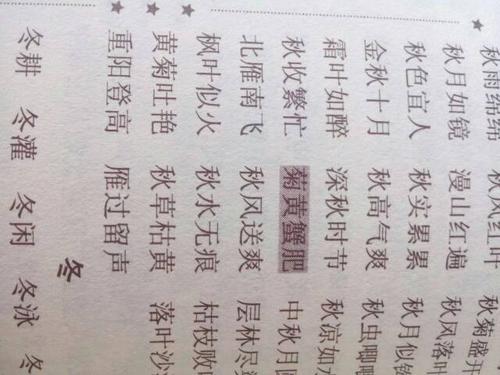 秋雨绵绵 秋风红叶 秋菊盛开
秋月如镜 漫山红遍 秋风落叶
秋色宜人 秋实累累 秋月似
金秋十月 秋高气爽 秋虫唧
霜叶如醉 深秋时节 秋凉如
秋收繁忙 菊黄蟹肥 中秋月
北雁南飞 秋风送爽 层林尽
枫叶似火 秋水无痕 枯枝败
黄菊吐艳 秋草枯黄 落叶沙
重阳登高 雁过留声
冬
冬耕 冬灌 冬闲 冬泳 冬